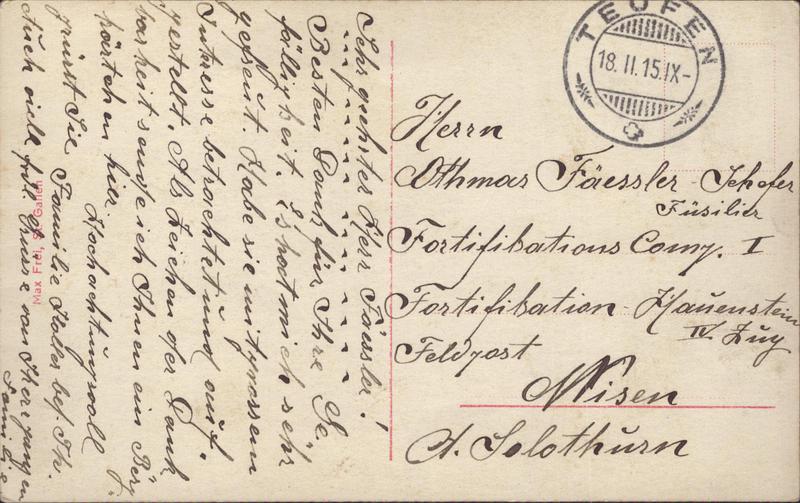 TEUFEN
18. II. 15. IX-
Herrn
Othmar Fäessler-Schefer
Füsilier
Fortifikations Comp. I
Fortifikation Hauenstein
IV. Zug
Feldpost
Wisen
Kt. Solothurn
Sehr geehrter Herr Fäessler!
Besten Dank für Ihre Ge-
fälligkeit. Es hat mich sehr
gefreut. Habe sie mit grossem
Intresse betrachtet und auf-
gestellt. Als Zeichen der Dank
barkeit sende ich Ihnen ein Ber
kärtchen hier.
Hochachtungsvoll
grüsst Sie Familie Koller bef. Th.
Auch viele frdl. Grüsse von Ihrer ganzen
Familie
Max Frei, St. Gallen